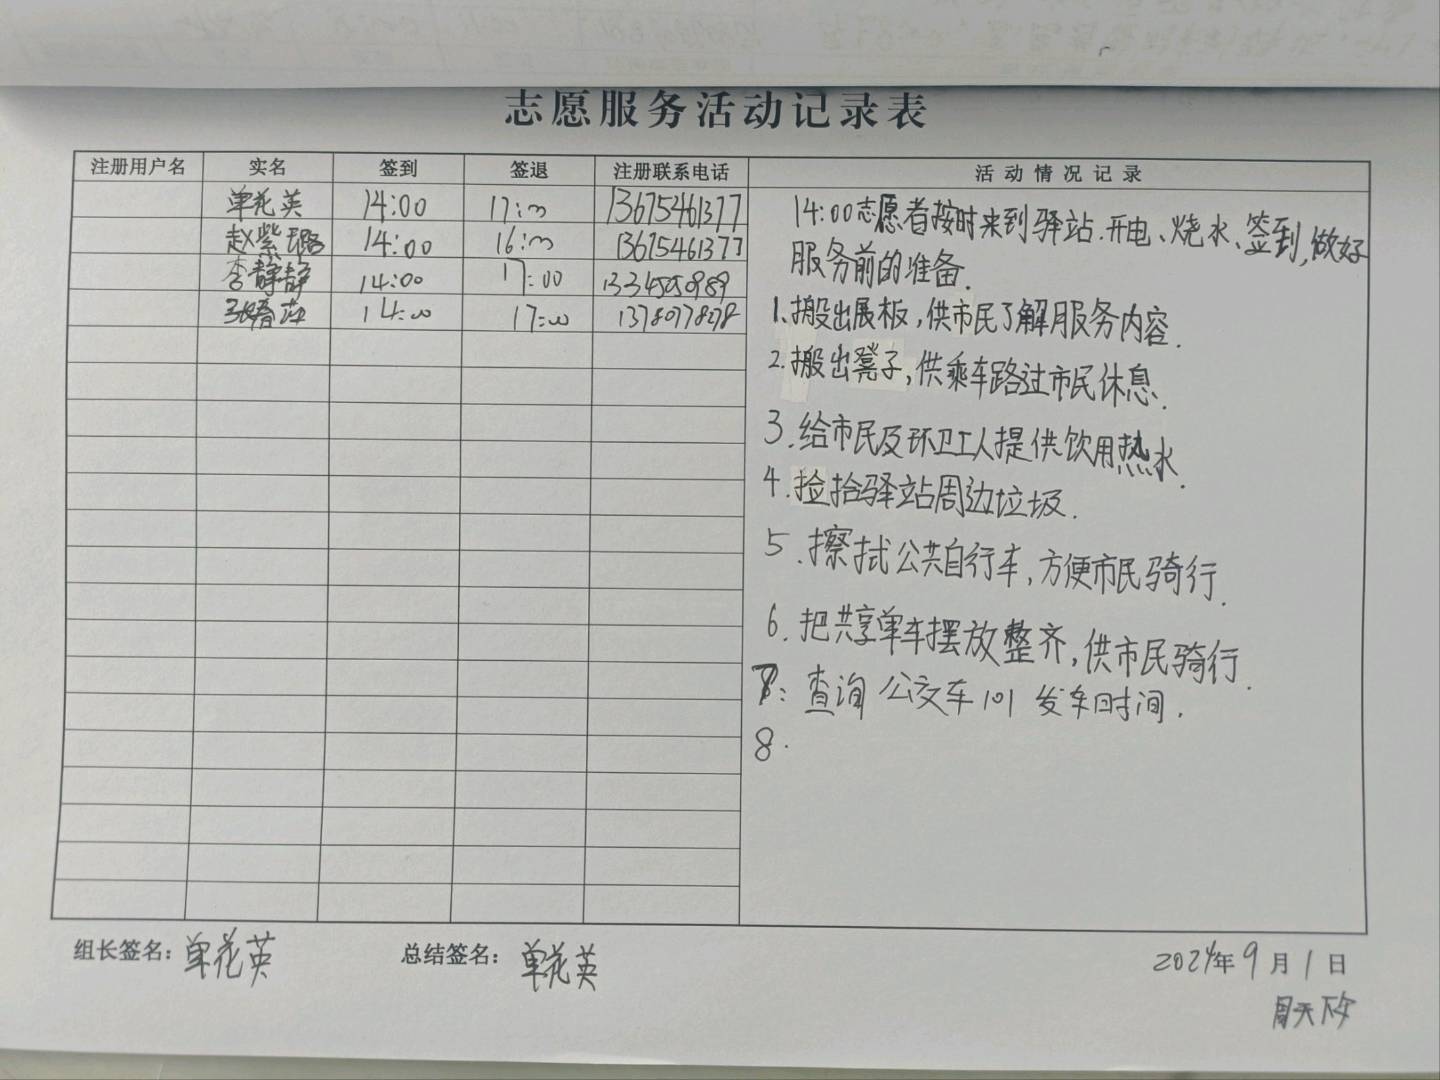 志愿服务活动记录表
注册用户名 实名 签到 签退 注册联系电话 活动情况记录
单花英 14:00 17:00 13675461377
赵紫璐 14:00 16:00 13675461377
李静静 14:00 17:00
14:00 17:00
14:00志愿者按时来到驿站.开电、烧水、签到,做好
服务前的准备.
1.搬出展板,供市民了解服务内容.
2.搬出凳子,供乘车路过市民休息.
3.给市民及环卫工人提供饮用热水.
4.捡拾驿站周边垃圾.
5.擦拭公共自行车,方便市民骑行.
6.把共享单车摆放整齐,供市民骑行.
7:查询公交车101发车时间.
8.
组长签名:单花英 总结签名:单花英 2024年9月1日
周天下午